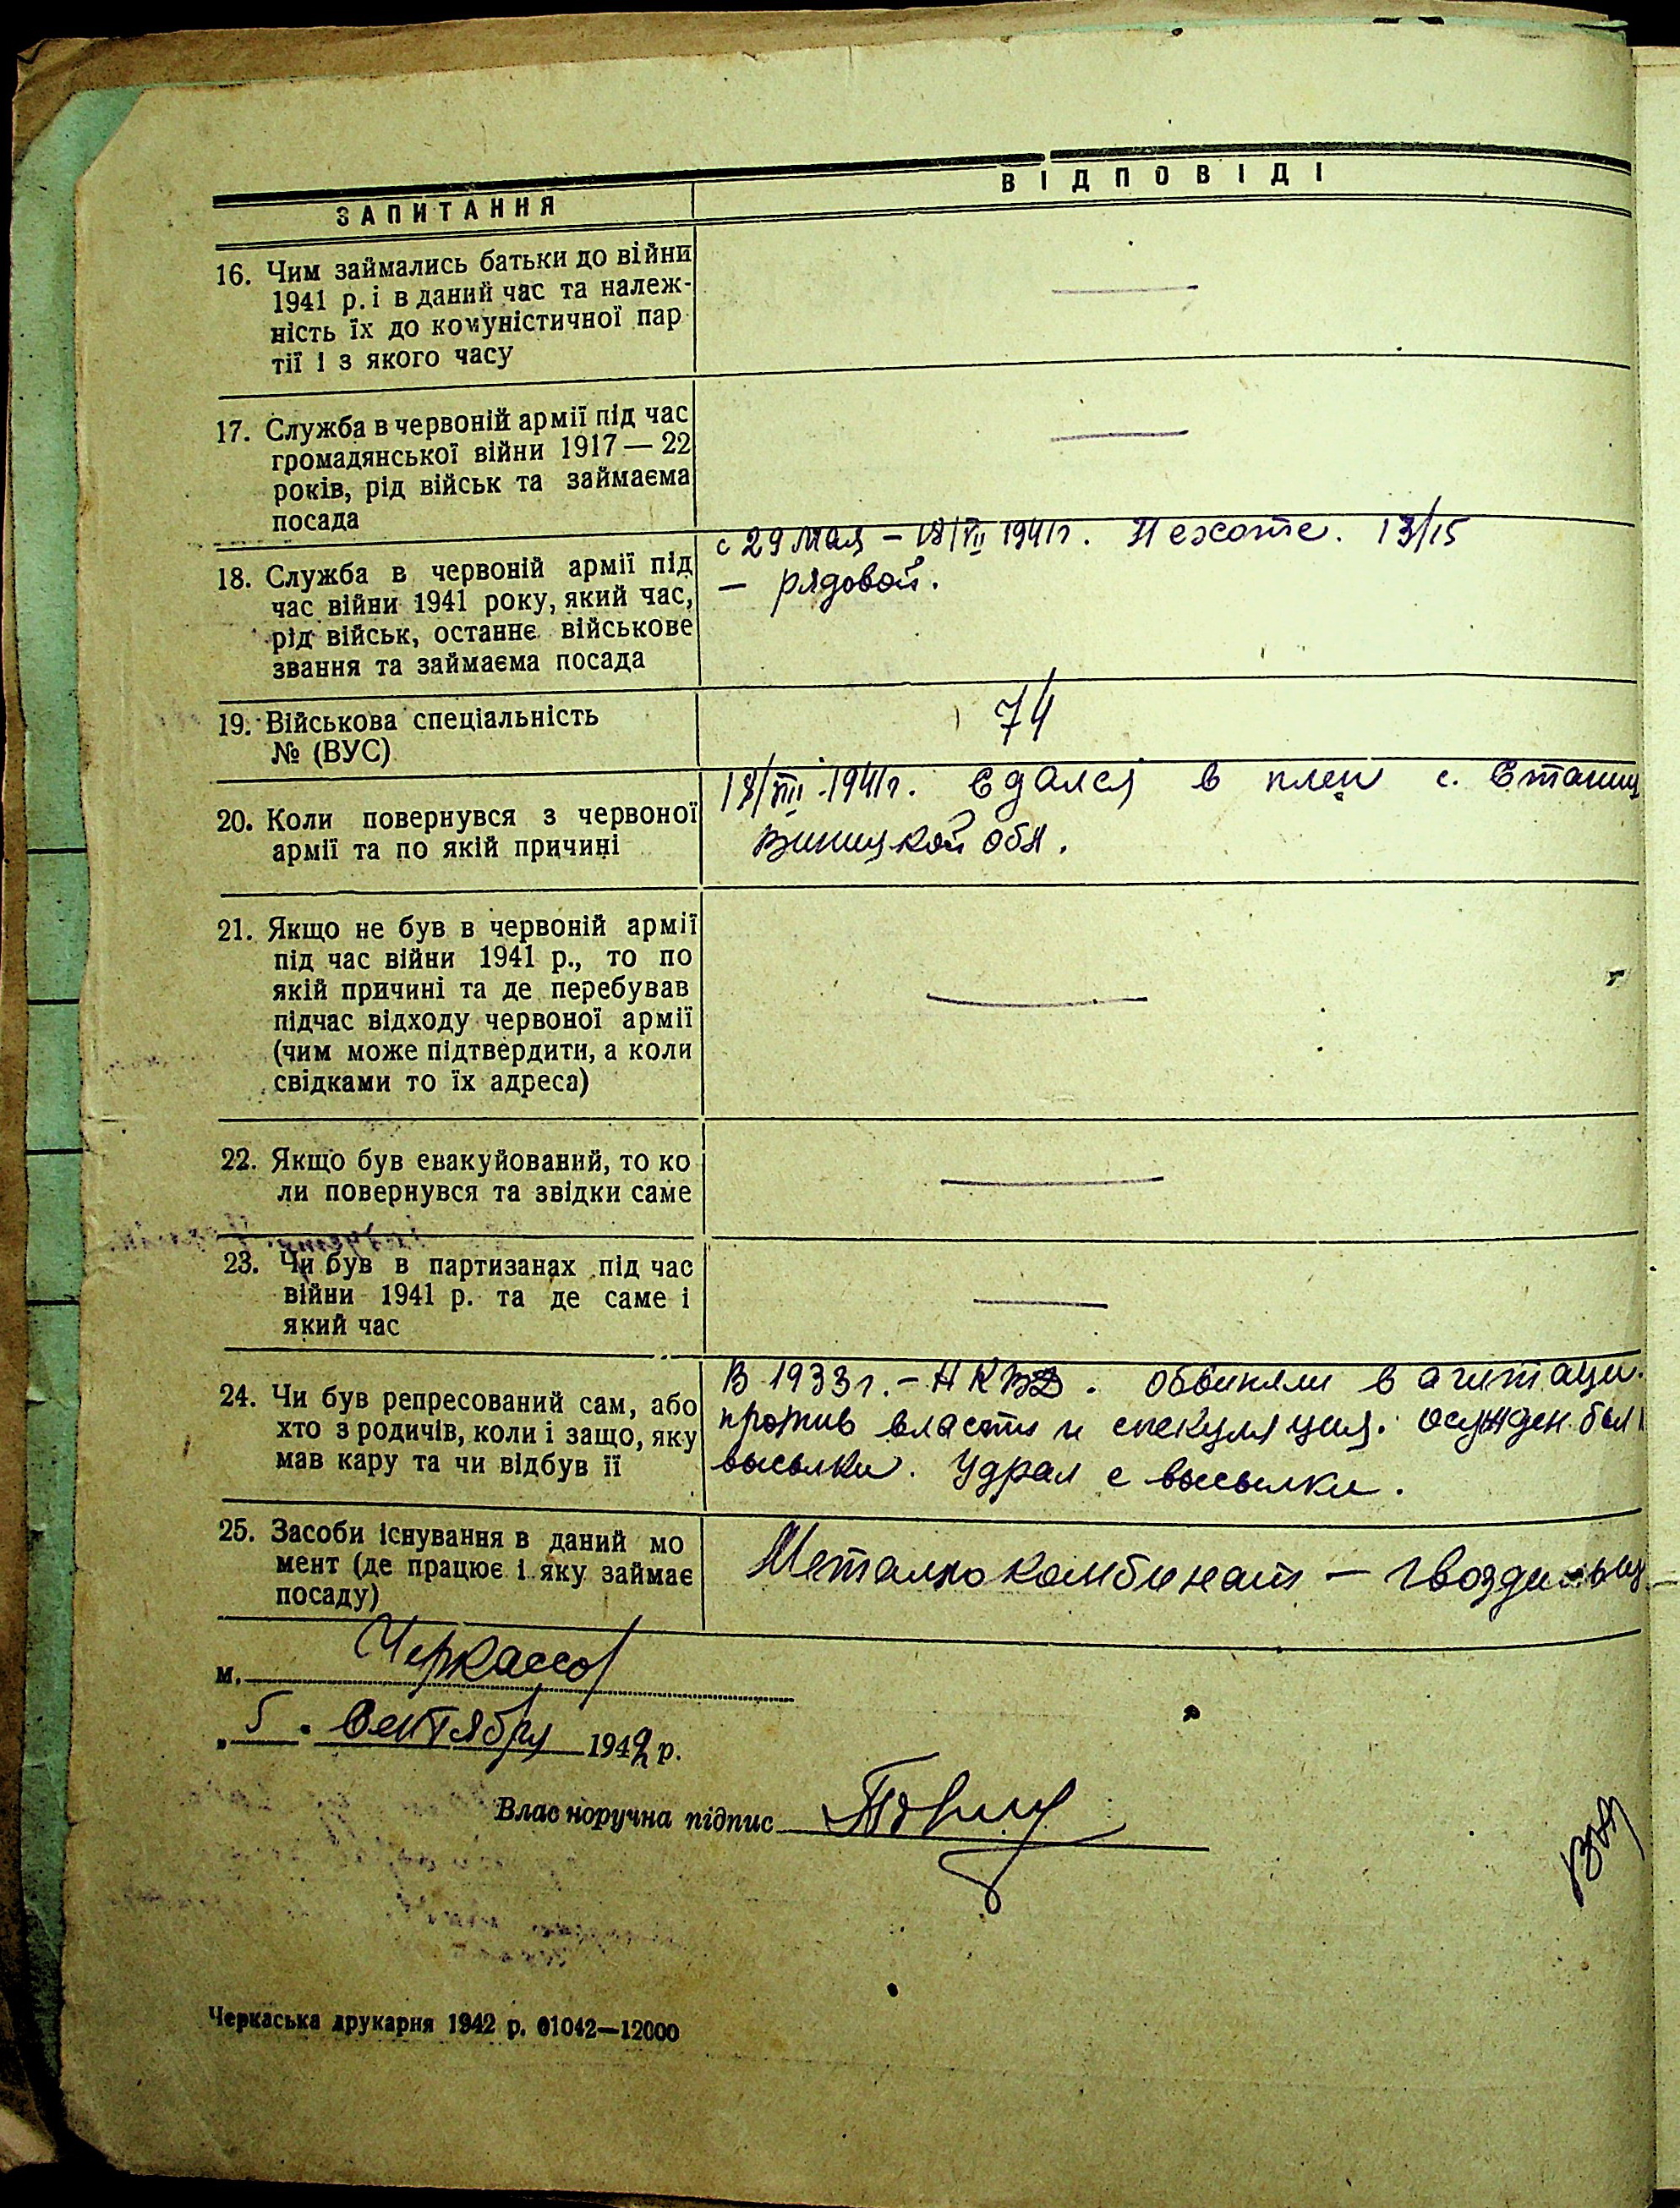 ЗАПИТАННЯ
ВІДПОВІДІ
16. Чим займались батьки до війни
1941 р. і в даний час та належ-
ність їх до комуністичної пар
тії і з якого часу
—
17. Служба в червоній армії під час
громадянської війни 1917 — 22
років, рід військ та займаєма
посада
—
18. Служба в червоній армії під
час війни 1941 року, який час,
рід військ, останнє військове
звання та займаєма посада
с 29 мая – 18/VII 1941г. Пехоте. 13/15
– рядовой.
19. Військова спеціальність
№ (ВУС)
74
20. Коли повернувся з червоної
армії та по якій причині
18/VIII 1941г. Сдался в плен с.
Виницкой обл.
21. Якщо не був в червоній армії
під час війни 1941 р., то по
якій причині та де перебував
підчас відходу червоної армії
(чим може підтвердити, а коли
свідками то їх адреса)
—
22. Якщо був евакуйований, то ко
ли повернувся та звідки саме
—
23. Чи був в партизанах під час
війни 1941 р. та де саме і
який час
—
24. Чи був репресований сам, або
хто з родичів, коли і защо, яку
мав кару та чи відбув її
В 1933г. – НКВД. обвиняли в агитаци.
против власти и спекуляция. осужден был
высылки. Удрал с высылки.
25. Засоби існування в даний мо
мент (де працює і яку займає
посаду)
Металлокомбинат –
м. Черкассы
„5" Сентября 1942 р.
Власноручна підпис
Черкаська друкарня 1942 р. 01042—12000